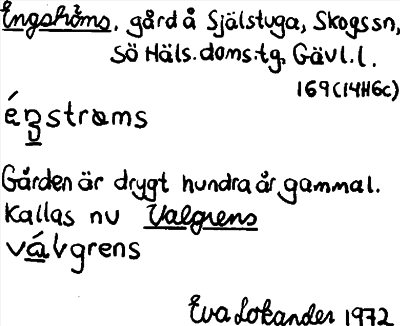 Engströms, gård å Själstuga, Skogs sn,
Sö Häls. doms.tg, Gävl. l.
169 (14H6c)
éŋstroms
Gården är drygt hundra år gammal.
Kallas nu Valgrens
válgrens
Eva Lokander 1972